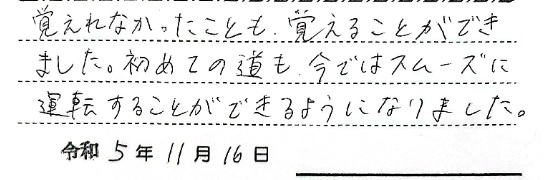 覚えれなかったことも、覚えることができ
ました。初めての道も、今ではスムーズに
運転することができるようになりました。
令和5年11月16日